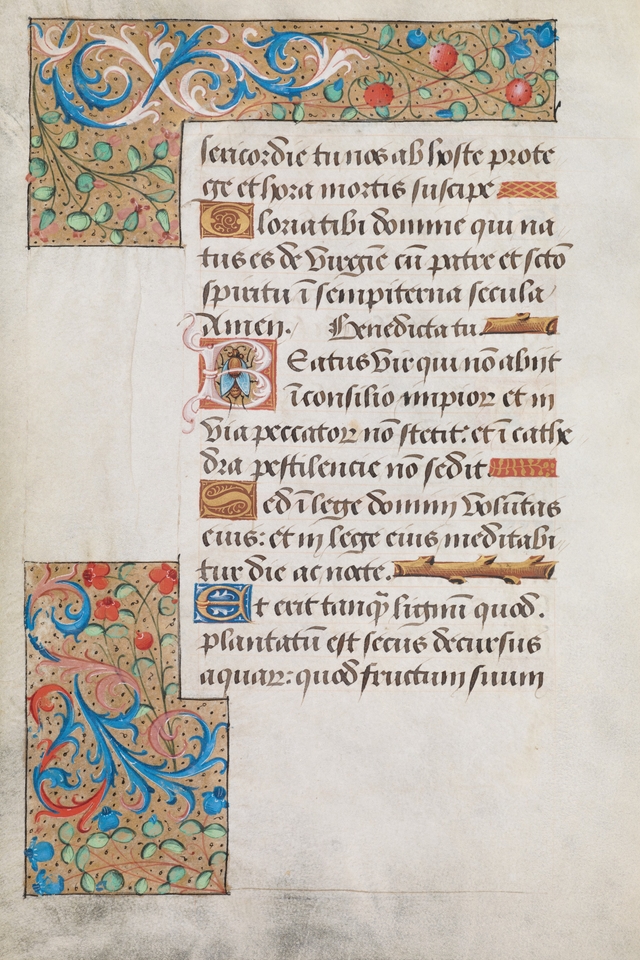 sericordie tu nos ab hoste prote
ge et hora mortis suscipe
Gloria tibi domine qui na
tus es de virgīe cū patre et scto
spiritu ī sempiterna secula
Amen. Benedicta tu.
Beatus vir qui nō abijt
ī consilio impioꝝ et in
via peccatoꝝ nō stetit: et ī cathe
dra pestilencie nō sedit
Sed ī lege domini volūtas
eius: et in lege eius meditabi
tur die ac nocte.
Et erit tanqȝ lignū quod.
plantatū est secus decursus
aquaꝝ: quod fructum suum